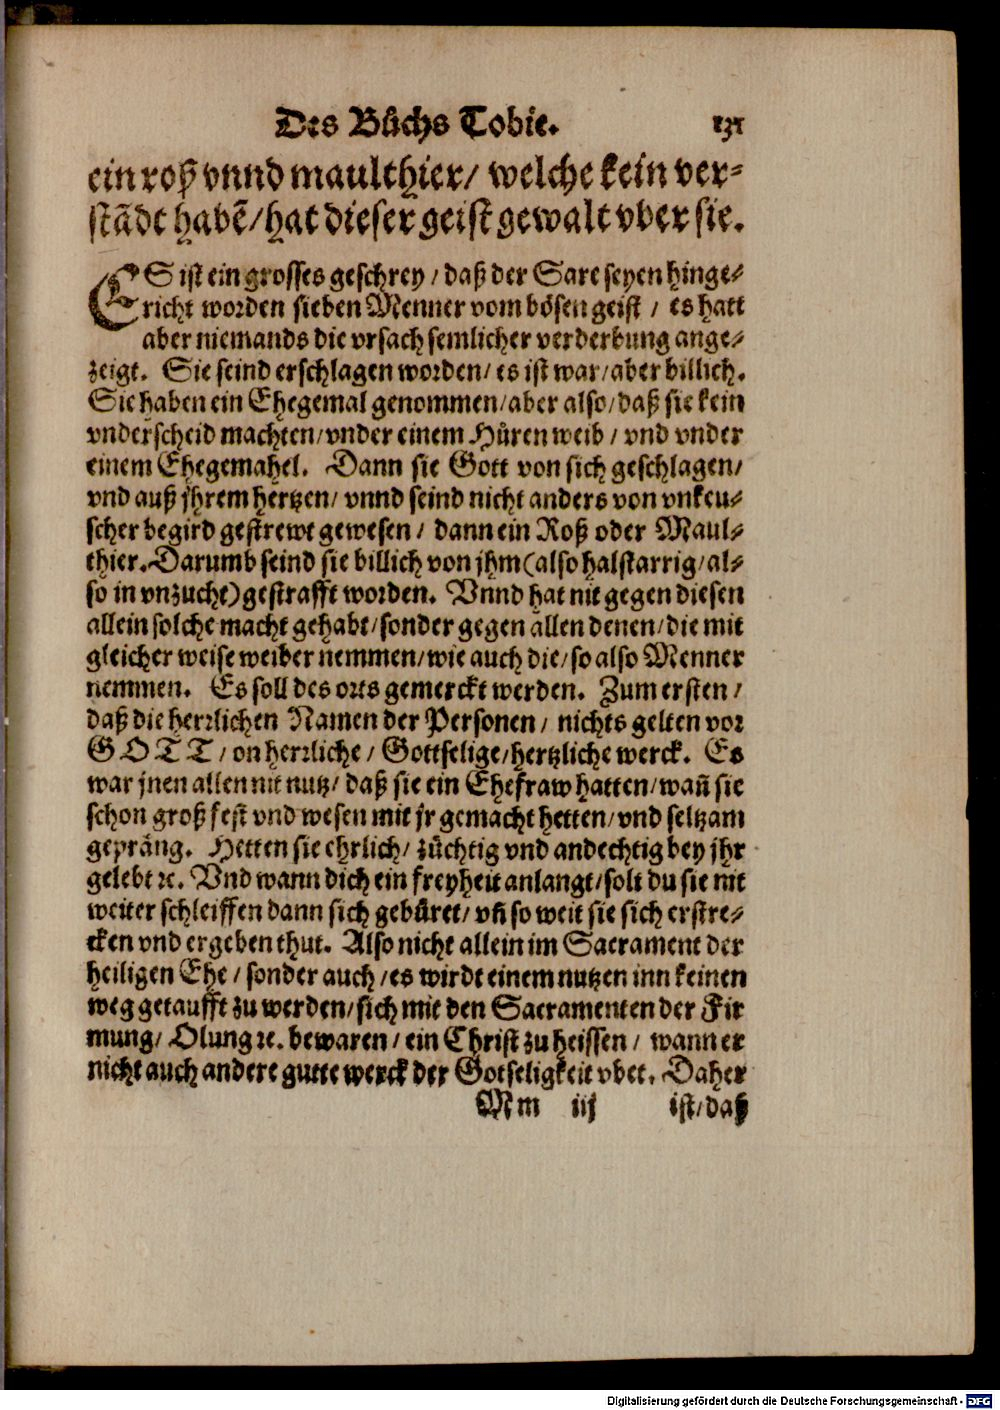 Des Bůchs Tobie. 131
ein roß vnnd maulthier/ welche kein ver-
stãdt habẽ/hat dieser geist gewalt vber sie.
ES ist ein grosses geschrey/ daß der Sare seyen hinge-
richt worden sieben Menner vom bösen geist/ es hatt
aber niemands die vrsach semlicher verderbung ange-
zeigt. Sie seind erschlagen worden/ es ist war/aber billich.
Sie haben ein Ehegemal genommen/aber also/daß sie kein
vnderscheid machten/vnder einem Hůren weib/ vnd vnder
einem Ehegemahel. Dann sie Gott von sich geschlagen/
vnd auß jhrem hertzen/ vnnd seind nicht anders von vnkeu-
scher begird gestrewt gewesen/ dann ein Roß oder Maul-
thier. Darumb seind sie billich von jhm(also halstarrig/al-
so in vnzucht)gestrafft worden. Vnnd hat nit gegen diesen
allein solche macht gehabt/sonder gegen allen denen/die mit
gleicher weise weiber nemmen/wie auch die/so also Menner
nemmen. Es soll des orts gemerckt werden. Zum ersten/
daß die herrlichen Namen der Personen/ nichts gelten vor
GOTT/on herrliche/ Gottselige/hertzliche werck. Es
war jnen allen nit nutz/ daß sie ein Ehefraw hatten/wañ sie
schon groß fest vnd wesen mit jr gemacht hetten/vnd seltzam
gepräng. Hetten sie ehrlich/ züchtig vnd andechtig bey jhr
gelebt ꝛc. Vnd wann dich ein freyheit anlangt/solt du sie nit
weiter schleiffen dann sich gebüret/ vñ so weit sie sich erstre-
cken vnd ergeben thut. Also nicht allein im Sacrament der
heiligen Ehe/sonder auch/es wirdt einem nutzen inn keinen
weg getaufft zu werden/sich mit den Sacramenten der Fir
mung/ Olung ꝛc. bewaren/ ein Christ zu heissen/ wann er
nicht auch andere gutte werck der Gotseligkeit vbet. Daher
Mm iij ist/daß
Digitalisierung gefördert durch die Deutsche Forschungsgemeinschaft - DFG